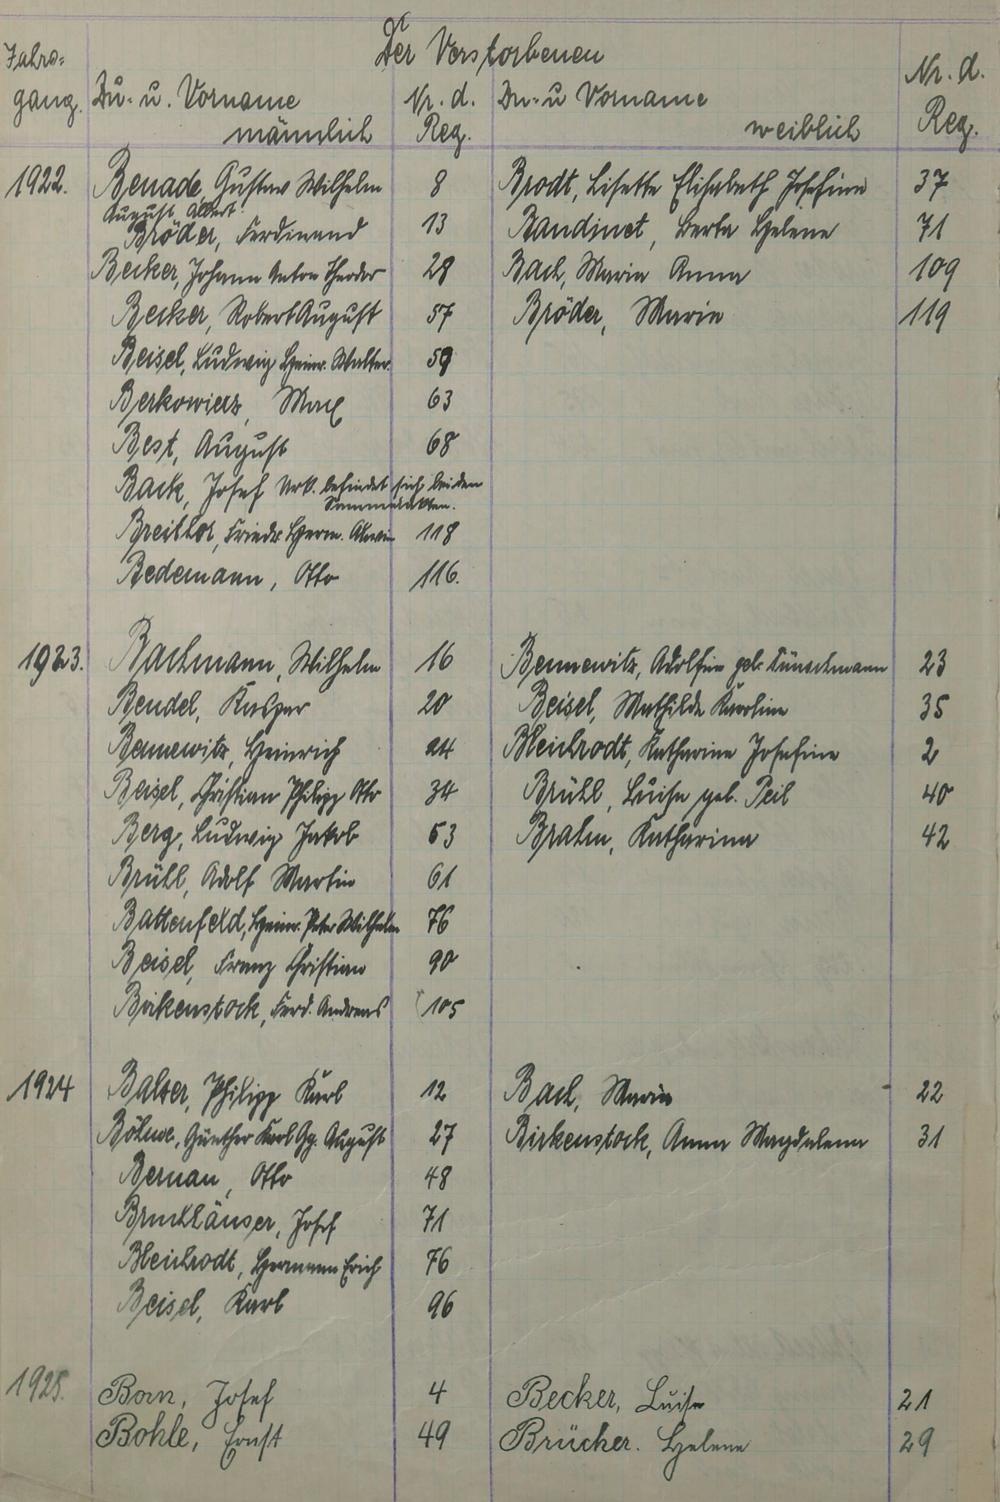 Der Verstorbenen
Jahrs=
gang. Zu- u. Vorname männlich Nr. d. Reg. Zu- u Vorname weiblich Nr. d. Reg.
1922. Benade, Gustav Wilhelm 8 Brodt, Lisette Elisabeth Josefine 37
August Albert
Bröder, Ferdinand 13 Baudinet, Berta Helene 71
Becker, Johann Anton Theodor 28 Bach, Maria Anna 109
Becker, Robert August 57 Bröder, Maria 119
Beisel, Ludwig Heinr. Walter 59
Berkowicz, Max 63
Best, August 68
Back, Josef Urk. befindet sich bei den
Sammelakten.
Friedr. Herm. 118
Bedemann, Otto 116.
1923. Bachmann, Wilhelm 16 Bennewitz, Adolfine geb. 23
Bendel, Kaspar 20 Beisel, Mathilde Karoline 35
Bennewitz, Heinrich 24 Bleichrodt, Katharine Josefine 2
Beisel, Christian Philipp Otto 34 Brühl, Luise geb. Peil 40
Berg, Ludwig Jakob 53 Brahm, Katharina 42
Brühl, Adolf Martin 61
Battenfeld, Heinr. Peter Wilhelm 76
Beisel, Franz Christian 90
Birkenstock, Ferd. Andreas 105
1924 Balser, Philipp Karl 12 Bach, Maria 22
Böhme, Günther Karl Gg. August 27 Birkenstock, Anna Magdalena 31
Bernau, Otto 48
Bruchhäuser, Josef 71
Bleichrodt, Hermann Erich 76
Beisel, Karl 96
1925. Born, Josef 4 Becker, Luise 21
Bohle, Ernst 49 Brücher. Helene 29